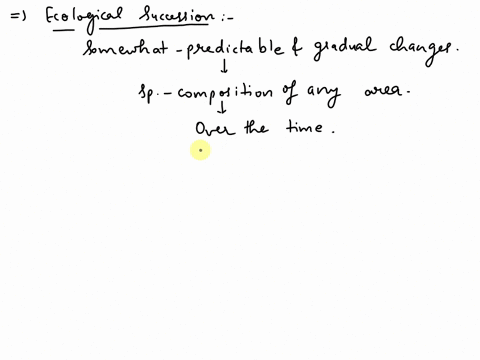 =) Ecological Succession :-
Somewhat - predictable & gradual changes.
↓
Sp. - composition of any area.
↓
Over the time.